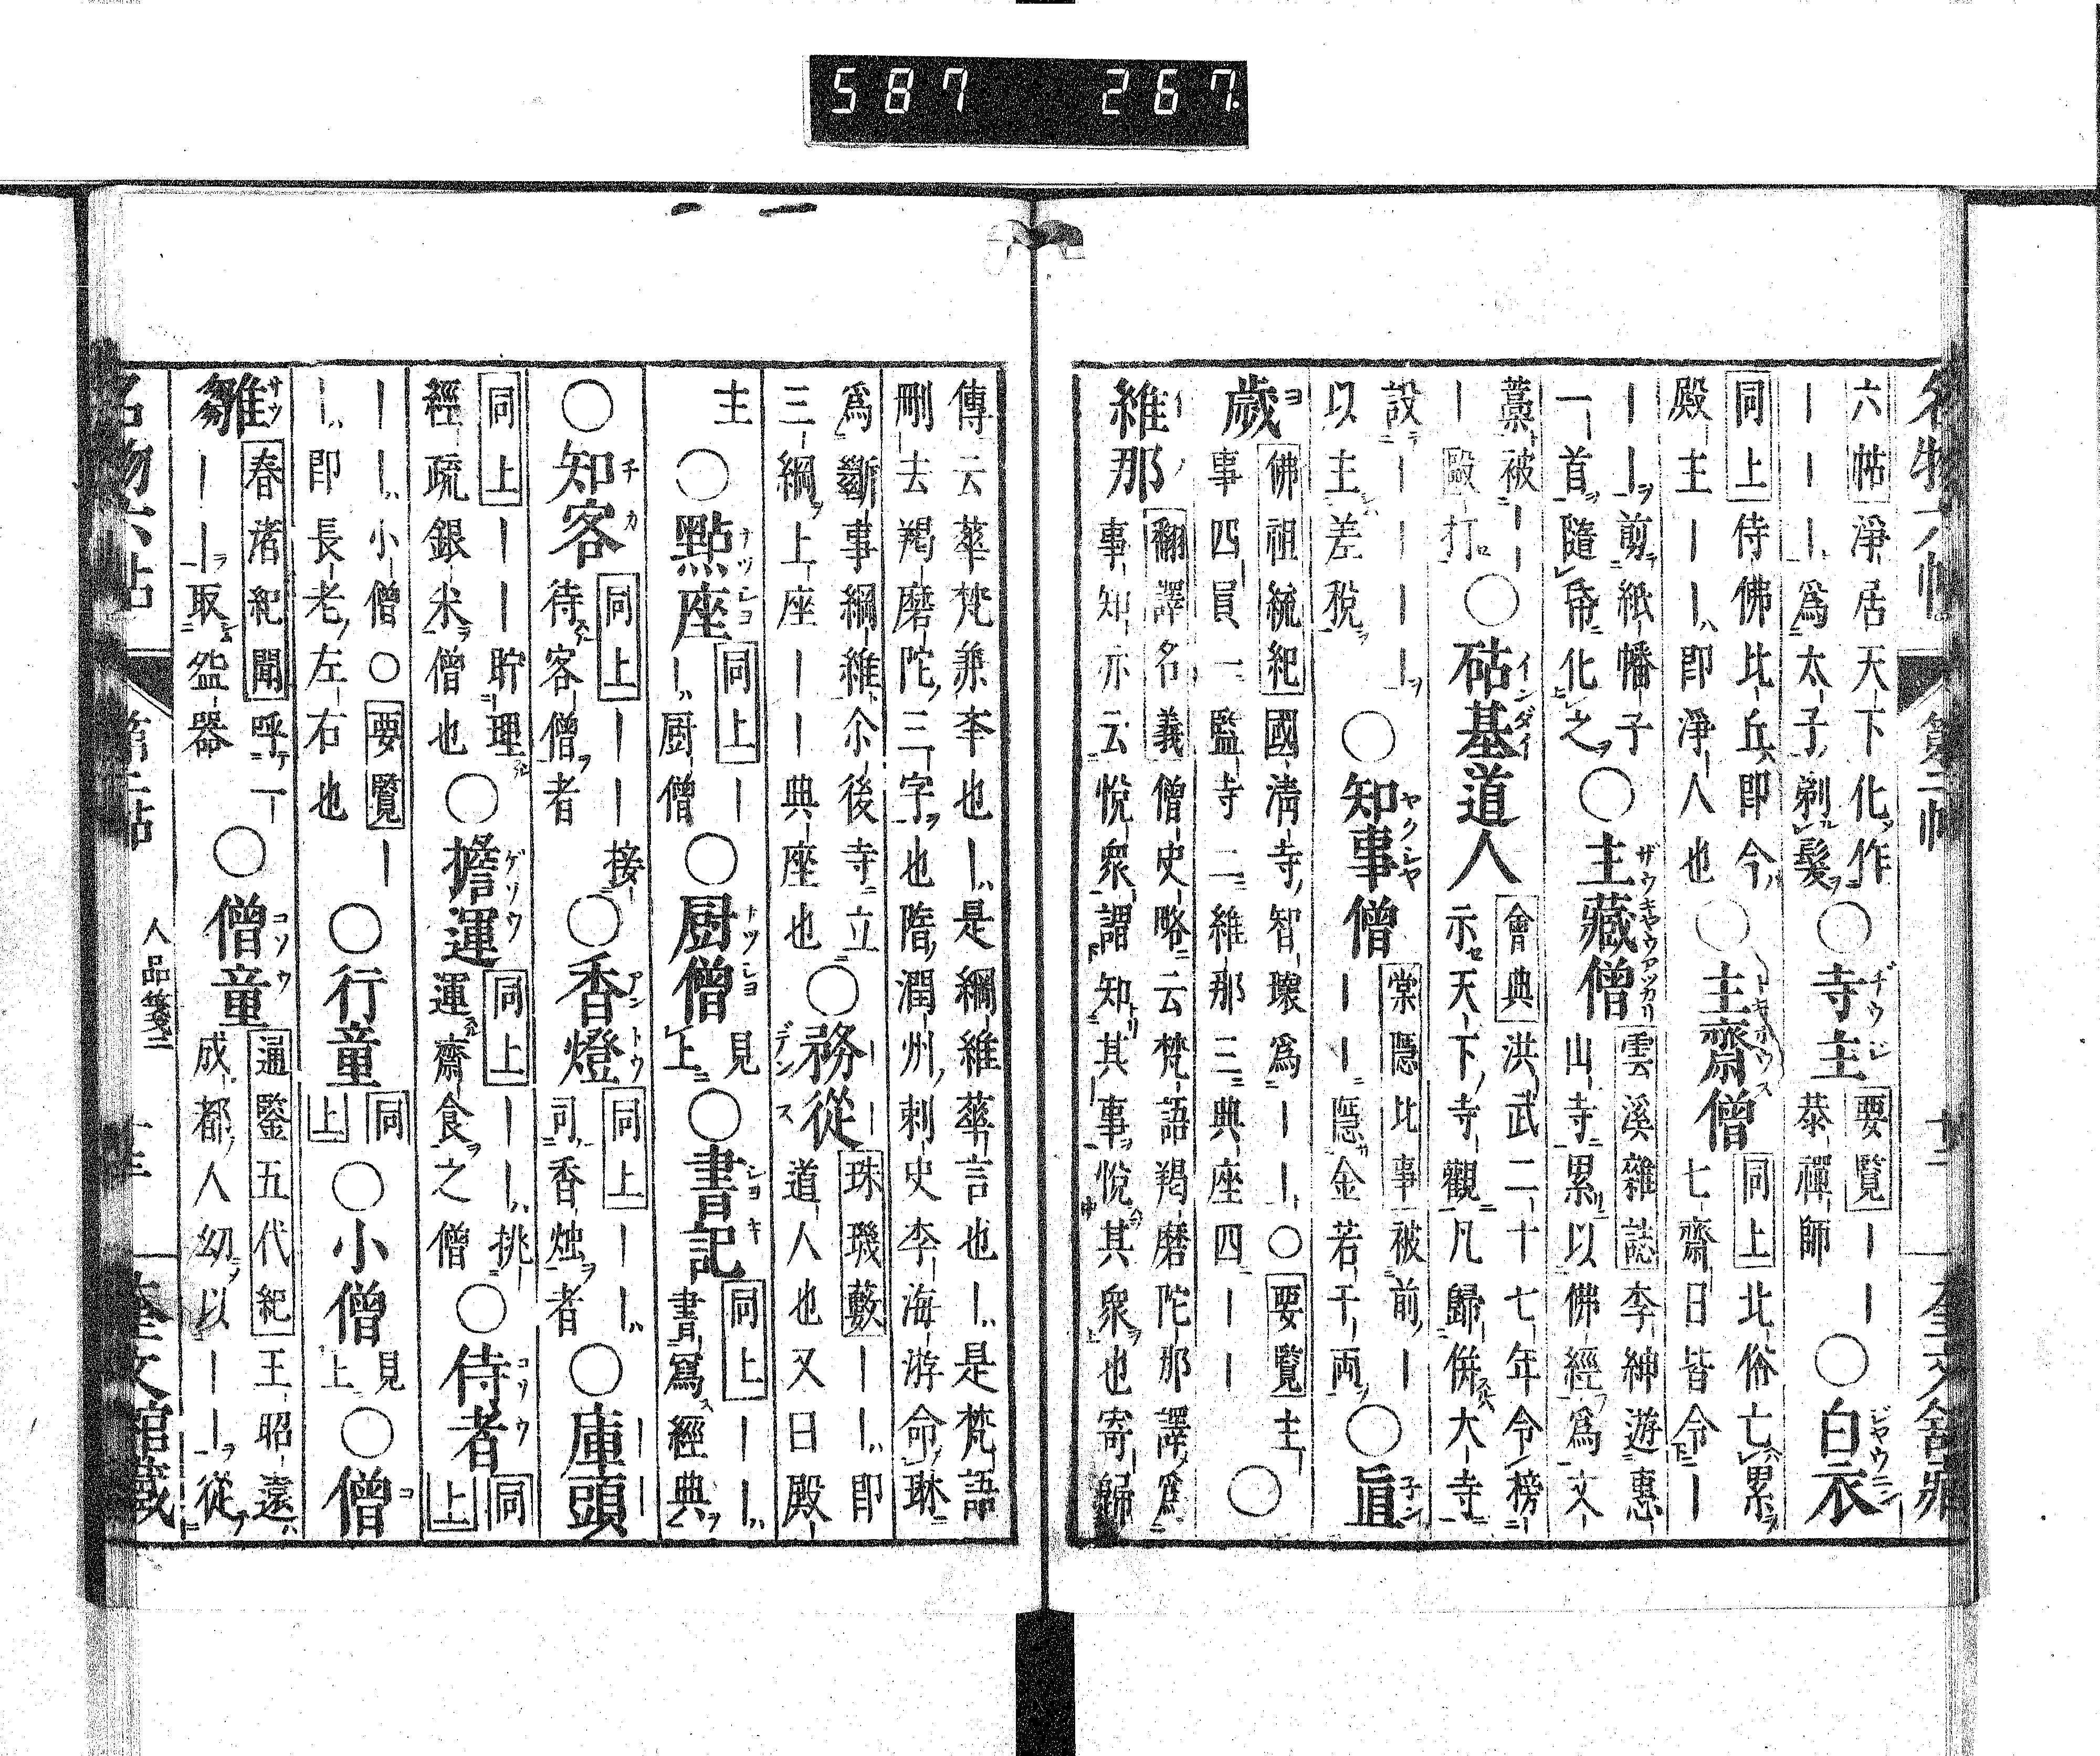 587 267
名物六帖 第二帖 十二 奎文舘藏
六帖淨居天下化作
｜｜｜爲太子剃髮
○寺主 要覧｜｜
恭禪師
○白衣
同上侍佛比丘即今
殿主｜｜即淨人也
○主齋僧 同上北俗亡累
七齋日皆令｜
｜｜剪紙幡子
一首隨帋化之
○主藏僧 雲溪雜誌李紳遊惠
山寺累以佛經爲文
藁被｜｜
｜毆打
○砧基道人 會典洪武二十七年令榜
示天下寺觀凡歸併大寺
設｜｜｜｜
以主差稅
○知事僧 棠隱比事被前｜
｜｜隱金若干両
○直
歲 佛祖統紀國淸寺智璪爲｜｜○要覧主
事四員一監寺二維那三典座四｜｜
○
維那 翻譯名義僧史略云梵語羯磨陀那譯爲
事知亦云悅衆謂知其事悅其衆也寄歸
傳云華梵兼奉也｜是綱維華言也｜是梵語
刪去羯磨陀三字也隋潤州刺史李海游命琳
爲斷事綱維尒後寺立
三綱上座｜｜典座也
○務從 珠璣藪｜｜即
道人也又曰殿
主
○點座 同上｜
｜厨僧
○厨僧 見上
○書記 同上｜｜
書寫經典
○知客 同上｜｜接
待客僧者
○香燈 同上｜｜
司香燭者
○庫頭
同上｜｜貯理
經疏銀米僧也
○擔運 同上｜｜挑
運齋食之僧
○侍者 同上
｜｜小僧○要覧｜
｜即長老左右也
○行童 同上
○小僧 見上
○僧
雛 春渚紀聞呼一
｜｜取盥器
○僧童 通鑒五代紀王昭遠
成都人幼以｜｜從
名物六帖 第二帖 人品箋二 十三 奎文舘藏